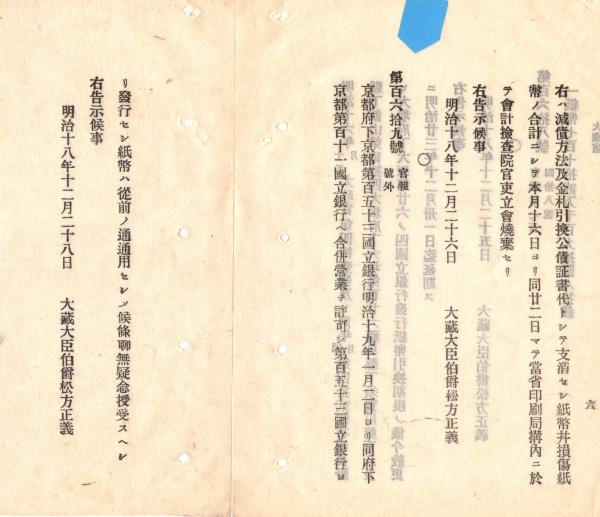 右ハ減債方法及金札引換公債証書代トシテ支消セシ紙幣幷損傷紙
幣ノ合計ニシテ本月十六日ヨリ同廿二日マテ當省印刷局搆內ニ於
テ會計檢査院官吏立會燒棄セリ
右告示候事
明治十八年十二月二十六日 大藏大臣伯爵松方正義
〇
第百六拾九號 官報號外
京都府下京都第百五十三國立銀行明治十九年一月二日ヨリ同府下
京都第百十一國立銀行ヘ合併營業ヲ許可シ第百五十三國立銀行ヨ
リ發行セシ紙幣ハ從前ノ通通用セシメ候條聊無疑念授受スヘシ
右告示候事
明治十八年十二月二十八日 大藏大臣伯爵松方正義
六